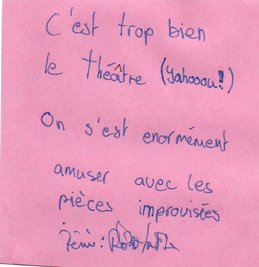 C'est trop bien
le théâtre (Yahooou!!)
On s'est enormément
amuser avec les
pièces improvisées